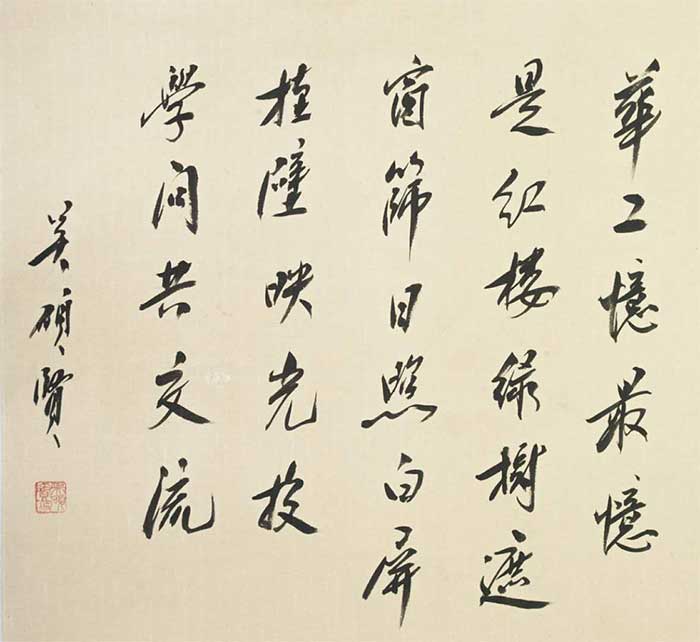 華工憶最憶
是紅樓綠樹遮
窗篩日照白屏
挂壁映光投
學問共交流
吴碩賢